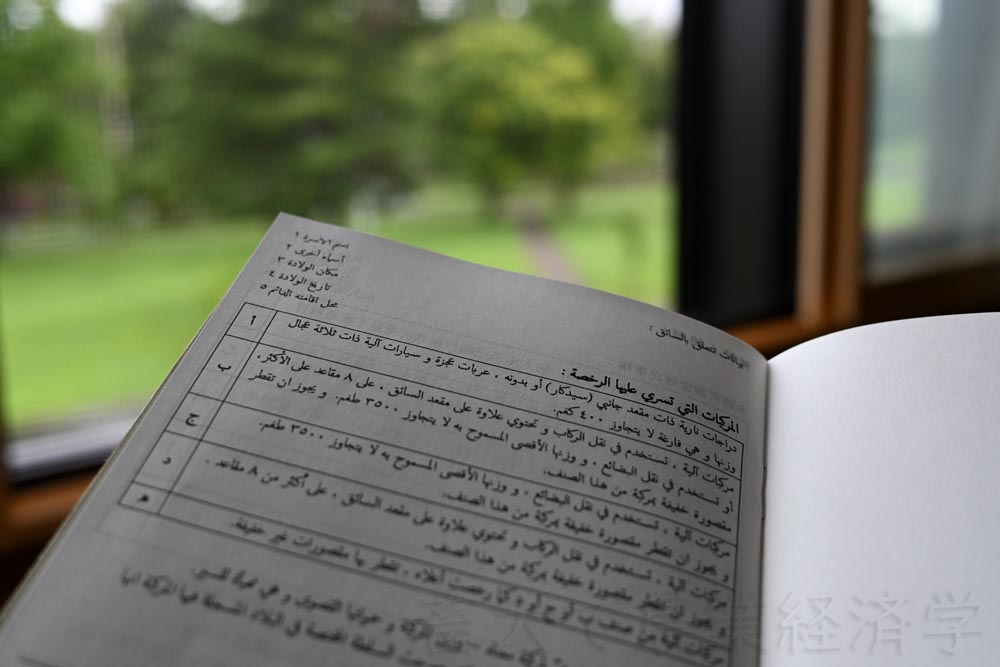 بيانات تتعلق بالسائق :
اسم الاسرة ١
أسماء أخرى ٢
مكان الولادة ٣
تاريخ الولادة ٤
محل اقامته الدائم ٥
المركبات التي تسري عليها الرخصة :
أ دراجات نارية ذات مقعد جانبي (سيدكار) أو بدونه ، عربات عجزة و سيارات آلية ذات ثلاثة عجال
وزنها و هي فارغة لا يتجاوز ٤٠٠ كغم.
ب مركبات آلية ، تستخدم في نقل الركاب و تحتوي علاوة على مقعد السائق ، على ٨ مقاعد على الأكثر ،
أو تستخدم في نقل البضائع ، و وزنها الأقصى المسموح به لا يتجاوز ٣٥٠٠ طغم. و يجوز ان تقطر
مقصورة خفيفة بمركبة من هذا الصنف.
ج مركبات آلية ، تستخدم في نقل البضائع ، و وزنها الأقصى المسموح به لا يتجاوز ٣٥٠٠ طغم.
و يجوز ان تقطر مقصورة خفيفة بمركبة من هذا الصنف.
د مركبات آلية ، تستخدم في نقل الركاب و تحتوي علاوة على مقعد السائق ، على أكثر من ٨ مقاعد .
و يجوز ان تقطر مقصورة خفيفة بمركبة من هذا الصنف.
ه مركبات آلية من صنف ب أو ج أو د كما رخصت أعلاه ، تقطر بها مقصورات غير خفيفة.
المركبة و حمولتها القصوى و هي مهيأة للسير.
السلطة المختصة في البلاد المسجلة فيها المركبة انها
経済学